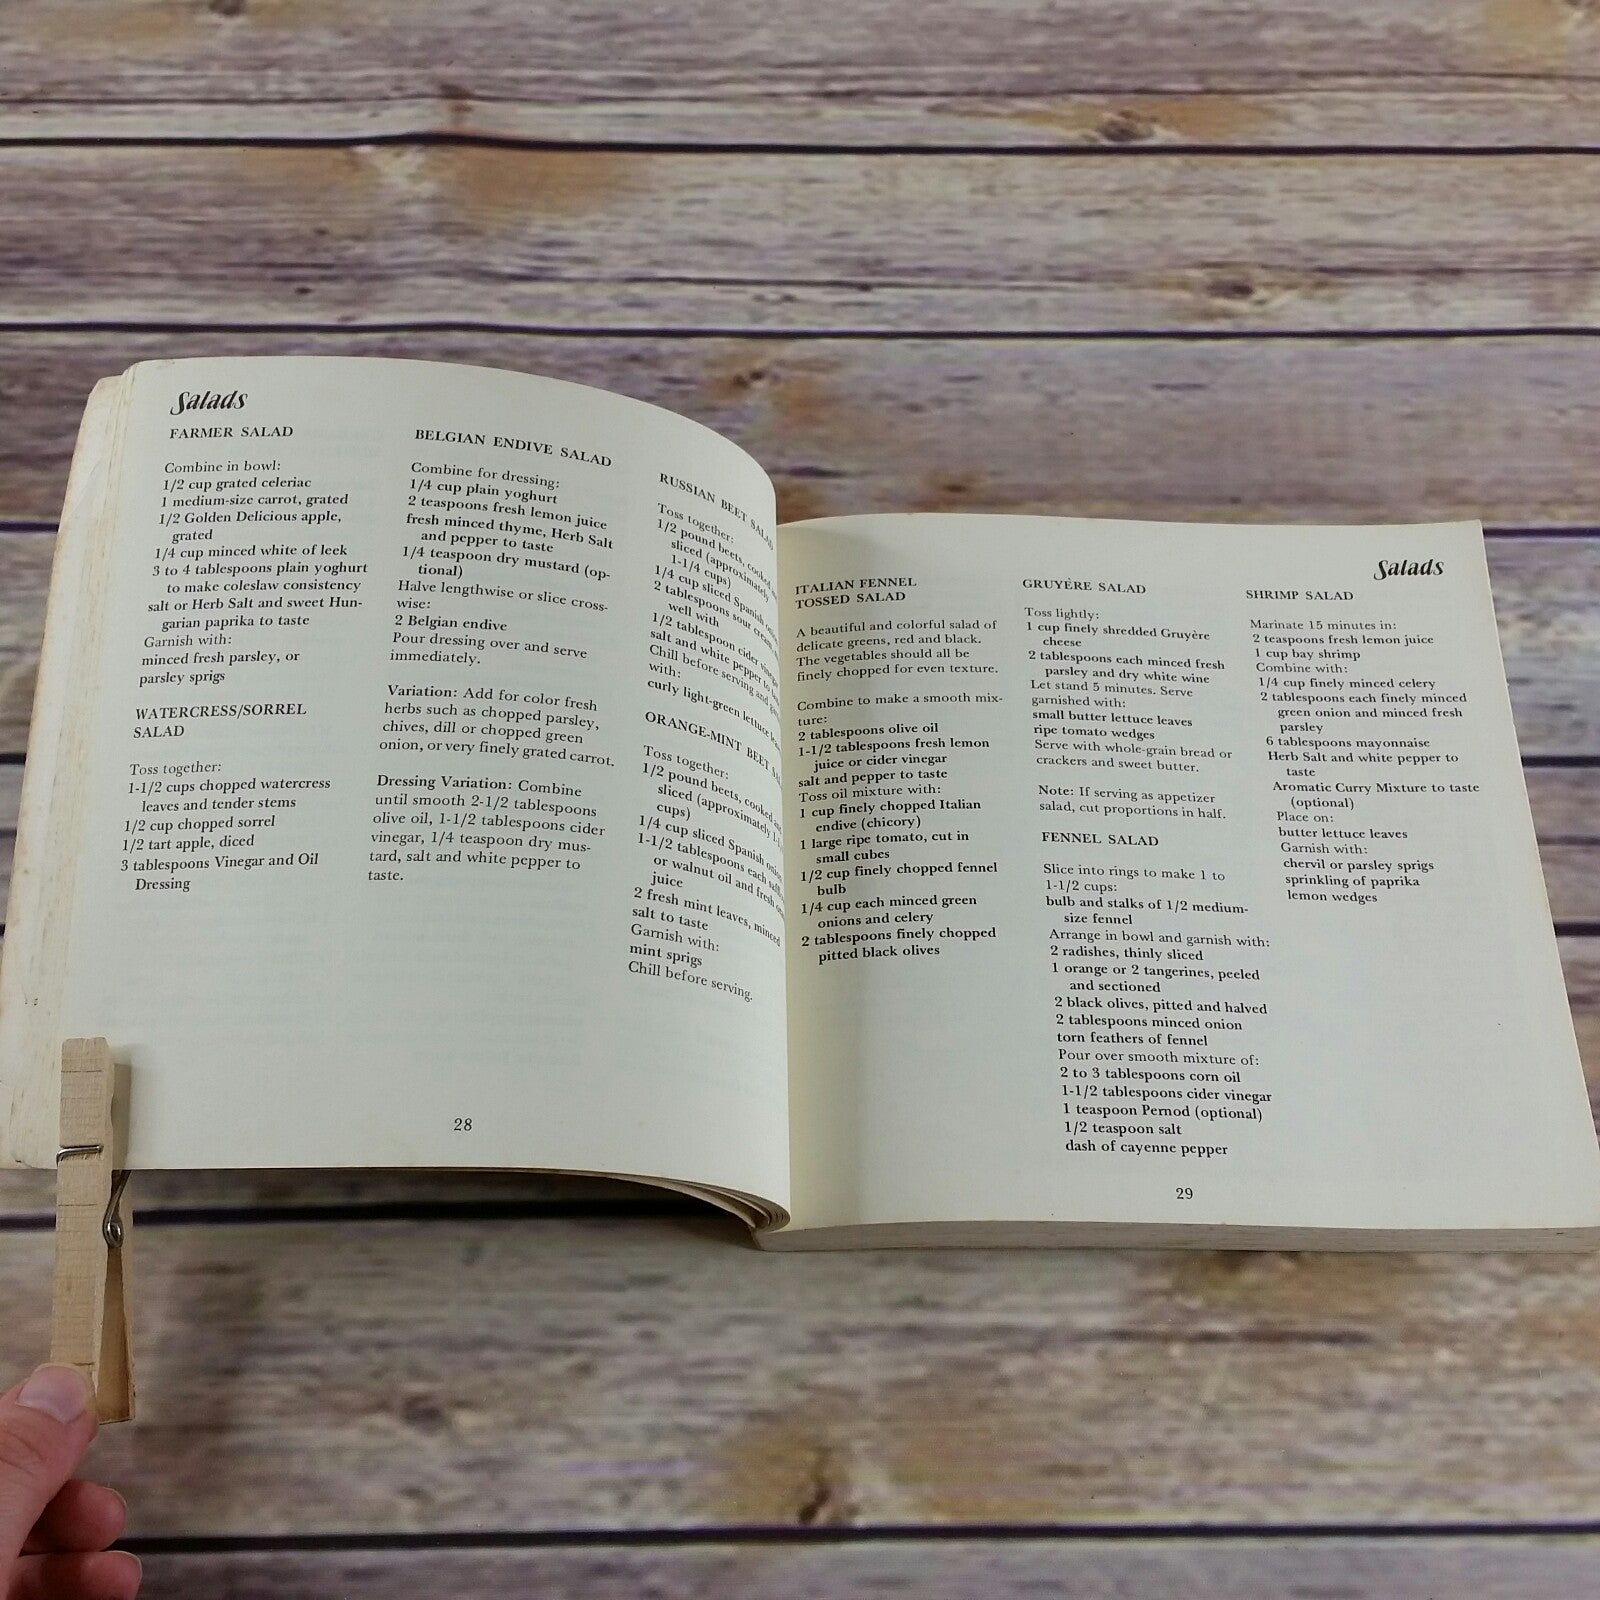 Salads
FARMER SALAD
Combine in bowl:
1/2 cup grated celeriac
1 medium-size carrot, grated
1/2 Golden Delicious apple,
grated
1/4 cup minced white of leek
3 to 4 tablespoons plain yoghurt
to make coleslaw consistency
salt or Herb Salt and sweet Hun-
garian paprika to taste
Garnish with:
minced fresh parsley, or
parsley sprigs
WATERCRESS/SORREL
SALAD
Toss together:
1-1/2 cups chopped watercress
leaves and tender stems
1/2 cup chopped sorrel
1/2 tart apple, diced
3 tablespoons Vinegar and Oil
Dressing
BELGIAN ENDIVE SALAD
Combine for dressing:
1/4 cup plain yoghurt
2 teaspoons fresh lemon juice
fresh minced thyme, Herb Salt
and pepper to taste
1/4 teaspoon dry mustard (op-
tional)
Halve lengthwise or slice cross-
wise:
2 Belgian endive
Pour dressing over and serve
immediately.
Variation: Add for color fresh
herbs such as chopped parsley,
chives, dill or chopped green
onion, or very finely grated carrot.
Dressing Variation: Combine
until smooth 2-1/2 tablespoons
olive oil, 1-1/2 tablespoons cider
vinegar, 1/4 teaspoon dry mus-
tard, salt and white pepper to
taste.
RUSSIAN BEET SALAD
Toss together:
1/2 pound beets, cooked,
sliced (approximately
1-1/4 cups)
1/4 cup sliced Spanish
2 tablespoons sour cream,
well with
1/2 tablespoon cider vinegar
salt and white pepper to
Chill before serving and
with:
curly light-green lettuce
ORANGE-MINT BEET
Toss together:
1/2 pound beets, cooked and
sliced (approximately
cups)
1/4 cup sliced Spanish
1-1/2 tablespoons each
or walnut oil and fresh
juice
2 fresh mint leaves, minced
salt to taste
Garnish with:
mint sprigs
Chill before serving.
28
Salads
ITALIAN FENNEL
TOSSED SALAD
A beautiful and colorful salad of
delicate greens, red and black.
The vegetables should all be
finely chopped for even texture.
Combine to make a smooth mix-
ture:
2 tablespoons olive oil
1-1/2 tablespoons fresh lemon
juice or cider vinegar
salt and pepper to taste
Toss oil mixture with:
1 cup finely chopped Italian
endive (chicory)
1 large ripe tomato, cut in
small cubes
1/2 cup finely chopped fennel
bulb
1/4 cup each minced green
onions and celery
2 tablespoons finely chopped
pitted black olives
GRUYÉRE SALAD
Toss lightly:
1 cup finely shredded Gruyère
cheese
2 tablespoons each minced fresh
parsley and dry white wine
Let stand 5 minutes. Serve
garnished with:
small butter lettuce leaves
ripe tomato wedges
Serve with whole-grain bread or
crackers and sweet butter.
Note: If serving as appetizer
salad, cut proportions in half.
FENNEL SALAD
Slice into rings to make 1 to
1-1/2 cups:
bulb and stalks of 1/2 medium-
size fennel
Arrange in bowl and garnish with:
2 radishes, thinly sliced
1 orange or 2 tangerines, peeled
and sectioned
2 black olives, pitted and halved
2 tablespoons minced onion
torn feathers of fennel
Pour over smooth mixture of:
2 to 3 tablespoons corn oil
1-1/2 tablespoons cider vinegar
1 teaspoon Pernod (optional)
1/2 teaspoon salt
dash of cayenne pepper
SHRIMP SALAD
Marinate 15 minutes in:
2 teaspoons fresh lemon juice
1 cup bay shrimp
Combine with:
1/4 cup finely minced celery
2 tablespoons each finely minced
green onion and minced fresh
parsley
6 tablespoons mayonnaise
Herb Salt and white pepper to
taste
Aromatic Curry Mixture to taste
(optional)
Place on:
butter lettuce leaves
Garnish with:
chervil or parsley sprigs
sprinkling of paprika
lemon wedges
29